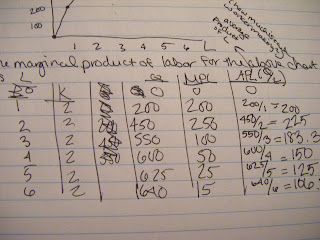 200
100
1 2 3 4 5 6 L
how much each
worker makes
average
product
of L
e marginal product of labor for the above chart
L K Q MPL APL (Q/L)
0 0 0
1 2 200 200 200/1 = 200
2 2 450 250 450/2 = 225
3 2 550 100 550/3 = 183.3
4 2 600 50 600/4 = 150
5 2 625 25 625/5 = 125
6 2 640 15 640/6 = 106.